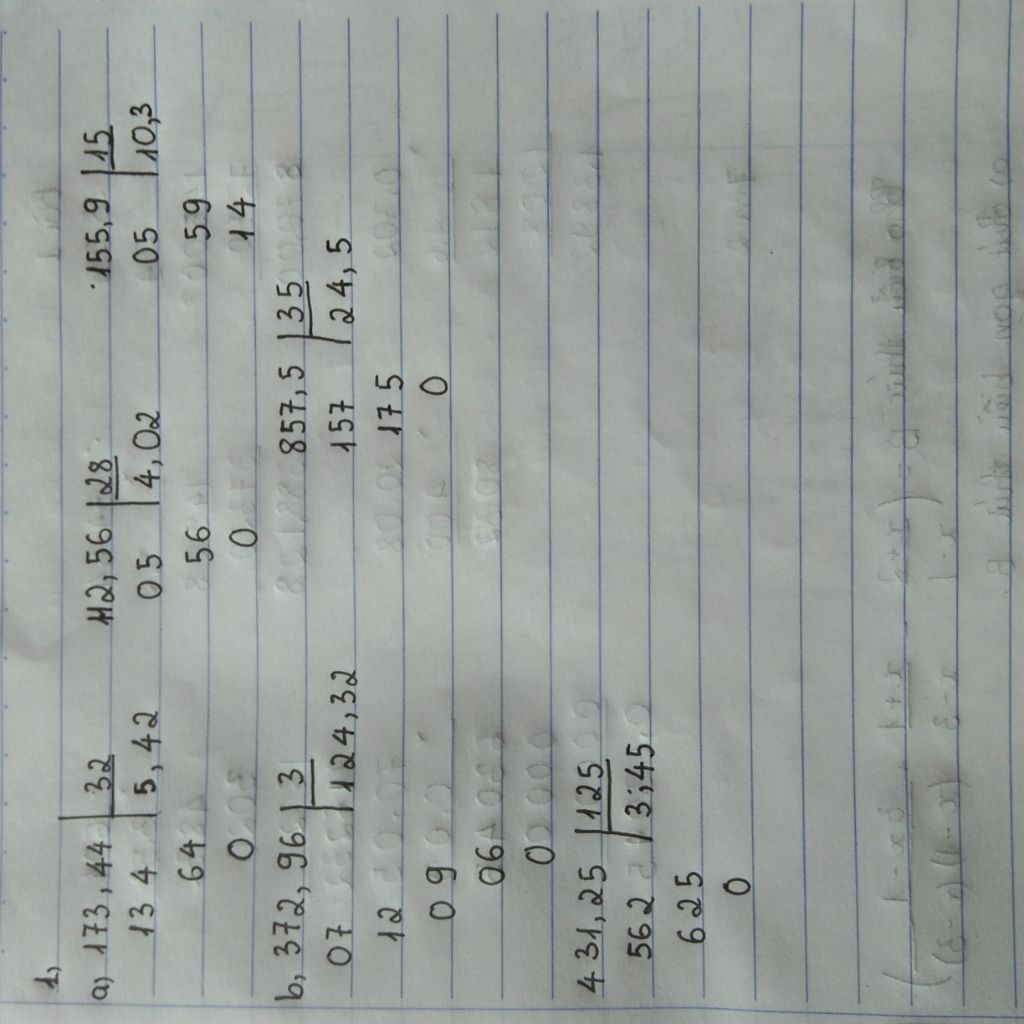 1,
a) 173,44 | 32 112,56 | 28 155,9 | 15
13 4 | 5,42 05 | 4,02 05 | 10,3
64 56 59
0 0 14
b, 372,96 | 3 857,5 | 35
07 | 124,32 157 | 24,5
12 175
09 0
06
00
431,25 | 125
562 | 3,45
625
0